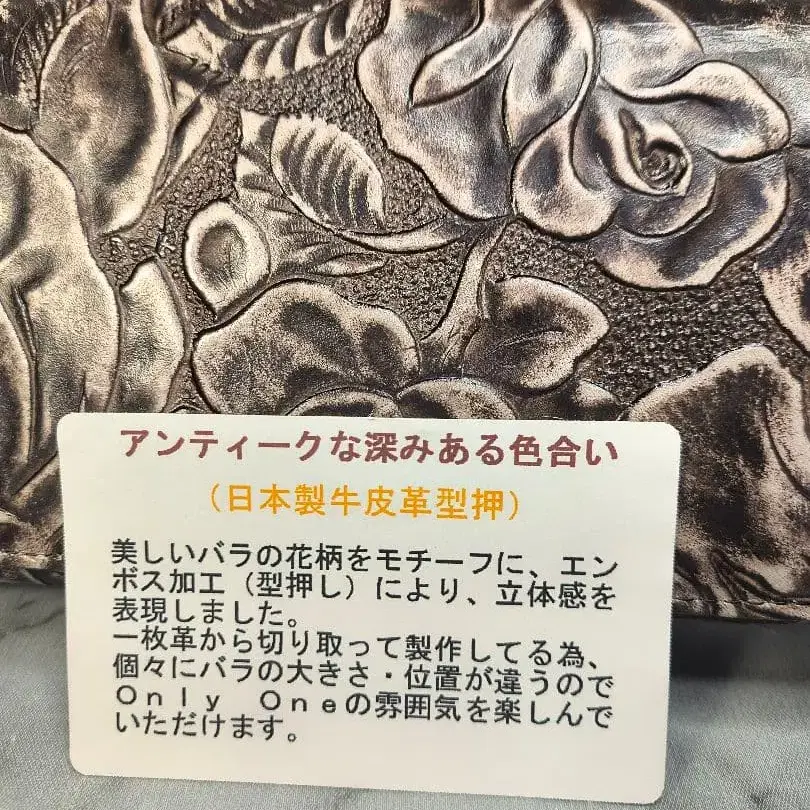 アンティークな深みある色合い
（日本製牛皮革型押）
美しいバラの花柄をモチーフに、エン
ボス加工（型押し）により、立体感を
表現しました。
一枚革から切り取って製作してる為、
個々にバラの大きさ・位置が違うので
Ｏｎｌｙ　Ｏｎｅの雰囲気を楽しんで
いただけます。